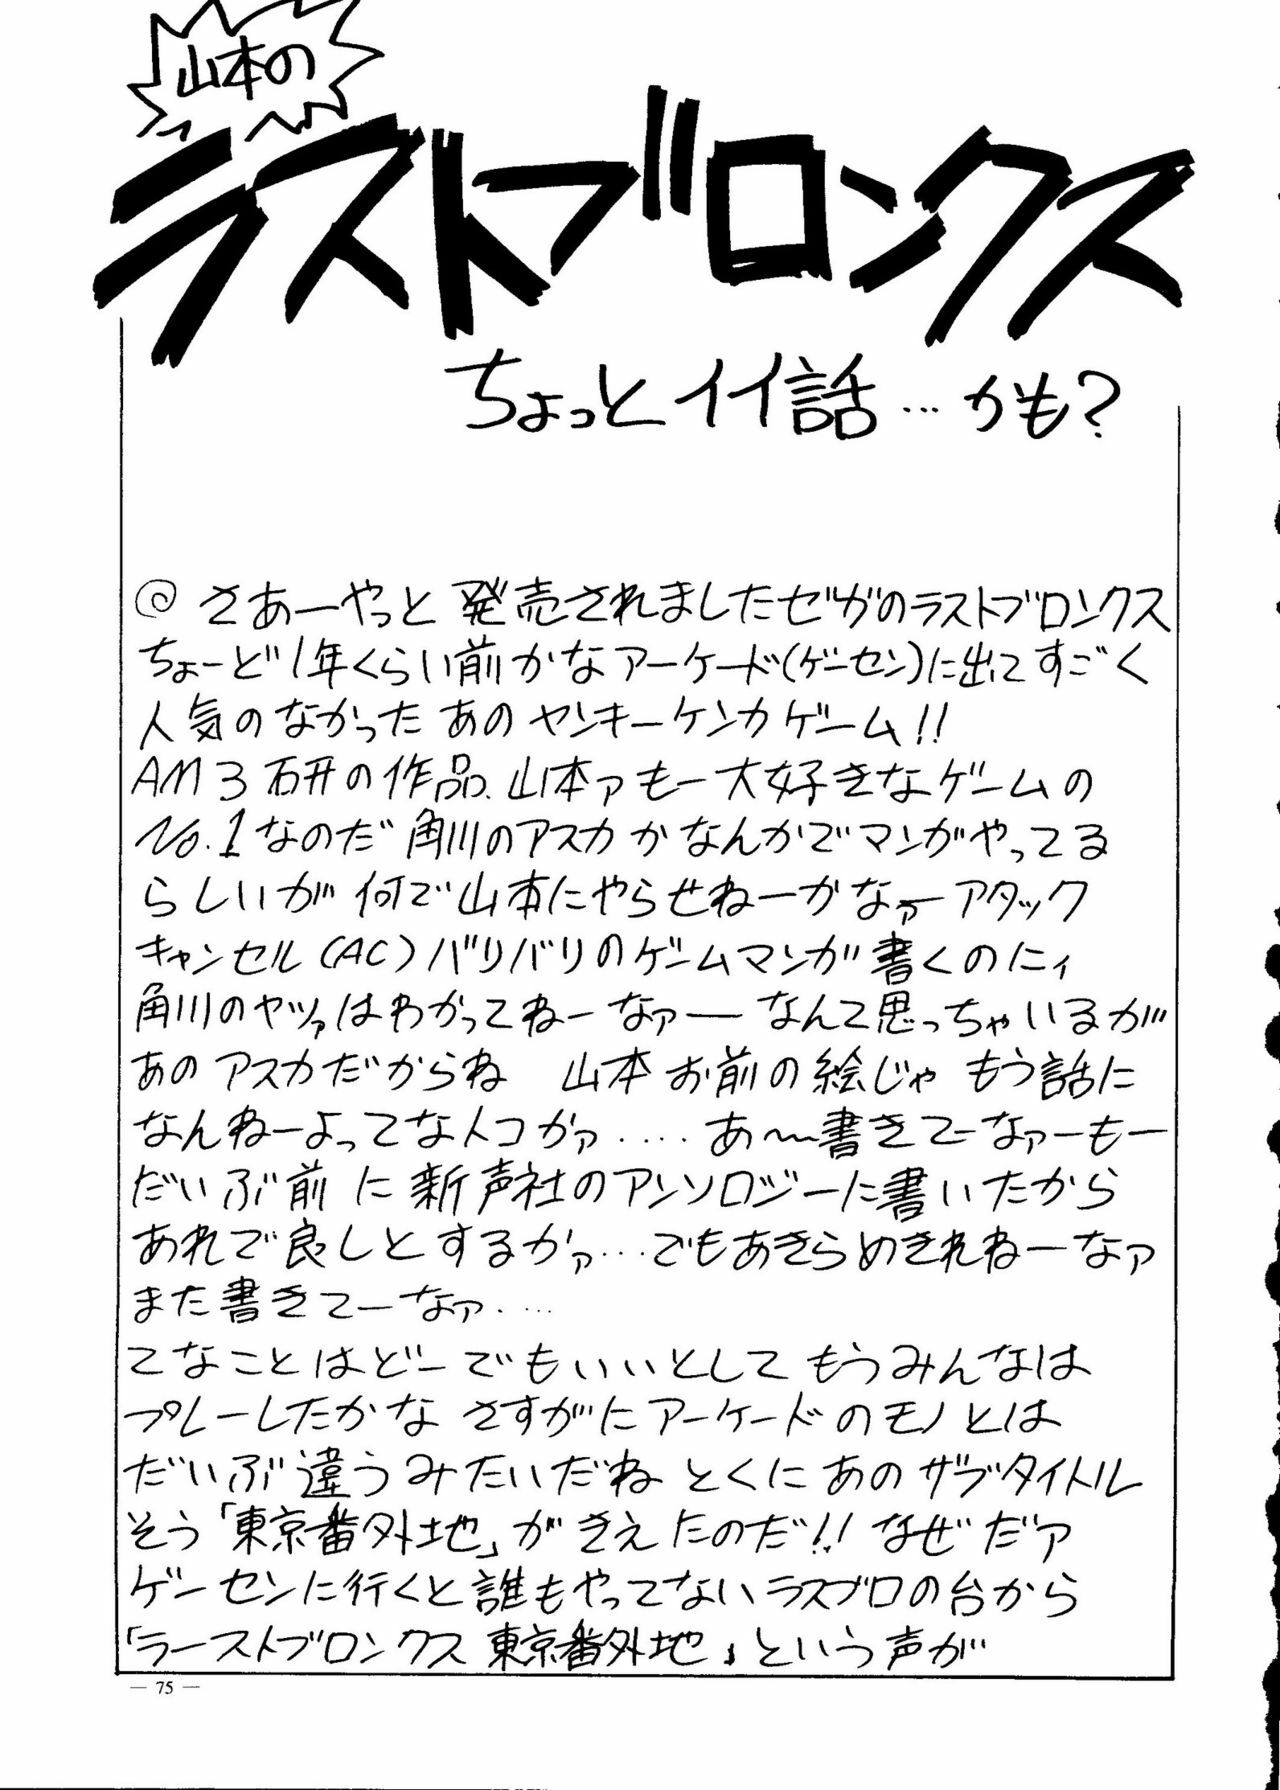 山本の
ラストブロンクス
ちょっとイイ話…かも?
さあーやっと発売されましたセガのラストブロンクス
ちょーど1年くらい前かなアーケード(ゲーセン)に出てすごく
人気のなかったあのヤンキーケンカゲーム!!
AM3研の作品、山本ァもー大好きなゲームの
No.1なのだ角川のアスカかなんかでマンガやってる
らしいが何で山本にやらせねーかなァーアタック
キャンセル(AC)バリバリのゲームマンガ書くのにィ
角川のヤツァはわかってねーなァーなんて思っちゃいるが
あのアスカだからね 山本お前の絵じゃもう話に
なんねーよってなトコかァ‥‥あ〜書きてーなァーもー
だいぶ前に新声社のアンソロジーに書いたから
あれで良しとするかァ…でもあきらめきれねーなァ
また書きてーなァ‥‥
てなことはどーでもいいとしてもうみんなは
プレーしたかな さすがにアーケードのモノとは
だいぶ違うみたいだね とくにあのサブタイトル
そう「東京番外地」がきえたのだ!! なぜだァ
ゲーセンに行くと誰もやってないラスブロの台から
「ラーストブロンクス 東京番外地」という声が
— 75 —